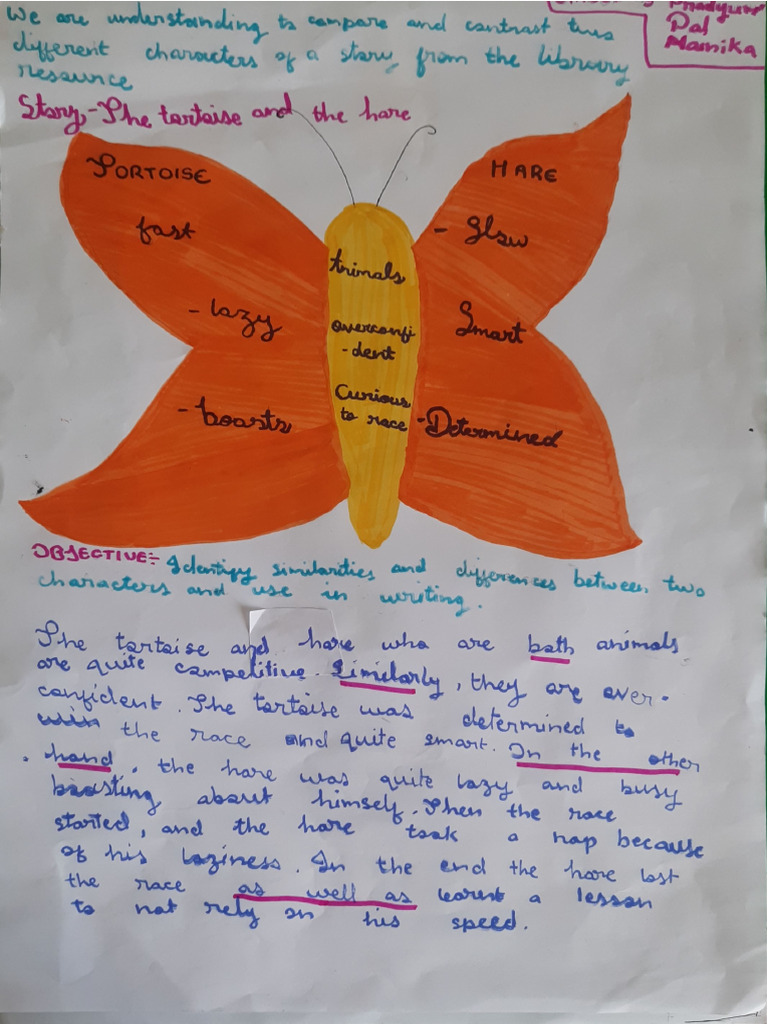 We are understanding to compare and contrast two
different characters of a story from the library
resource
Pal
Mainika
Story-The tortoise and the hare
TORTOISE
HARE
fast
- Slow
Animals
- lazy
overconfi
-dent
Smart
- boasts
Curious
to race
-Determined
OBJECTIVE:- Identify similarities and differences between two
characters and use in writing.
The tortoise and hare who are both animals
are quite competitive. Similarly, they are over-
confident. The tortoise was determined to
win the race and quite smart. In the other
hand, the hare was quite lazy and busy
boasting about himself. Then the race
started, and the hare took a nap because
of his laziness. In the end the hare lost
the race as well as learnt a lesson
to not rely on his speed.